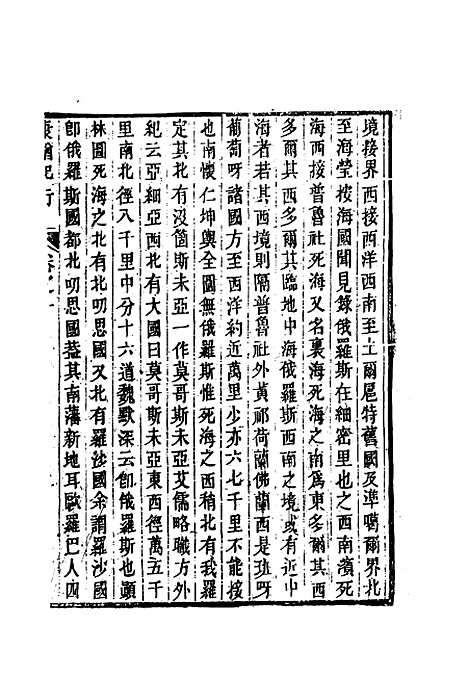 境接界西接西洋西南至土爾扈特舊國及準噶爾界北
至海瑩按海國聞見錄俄羅斯在細密里也之西南濱死
海西接普魯社死海又名裏海死海之南爲東多爾其西
多爾其臨地中海俄羅斯西南之境或有近中
海者若其西境則隔普魯社外黃祁荷蘭佛蘭西是班呀
葡萄呀諸國方至西洋約近萬里少亦六七千里不能接
也南懷仁坤輿全圖無俄羅斯惟死海之西稍北有我羅
定其北有沒箇斯未亞一作莫哥斯未亞艾儒略職方外
紀云亞細亞西北有大國曰莫哥斯未亞東西徑萬五千
里南北徑八千里中分十六道魏默深云卽俄羅斯也顗
林圖死海之北有北叨思國又有羅沙國余謂羅沙國
卽俄羅斯國都北叨思國葢其南藩新地耳歐羅巴人四
康輶紀行